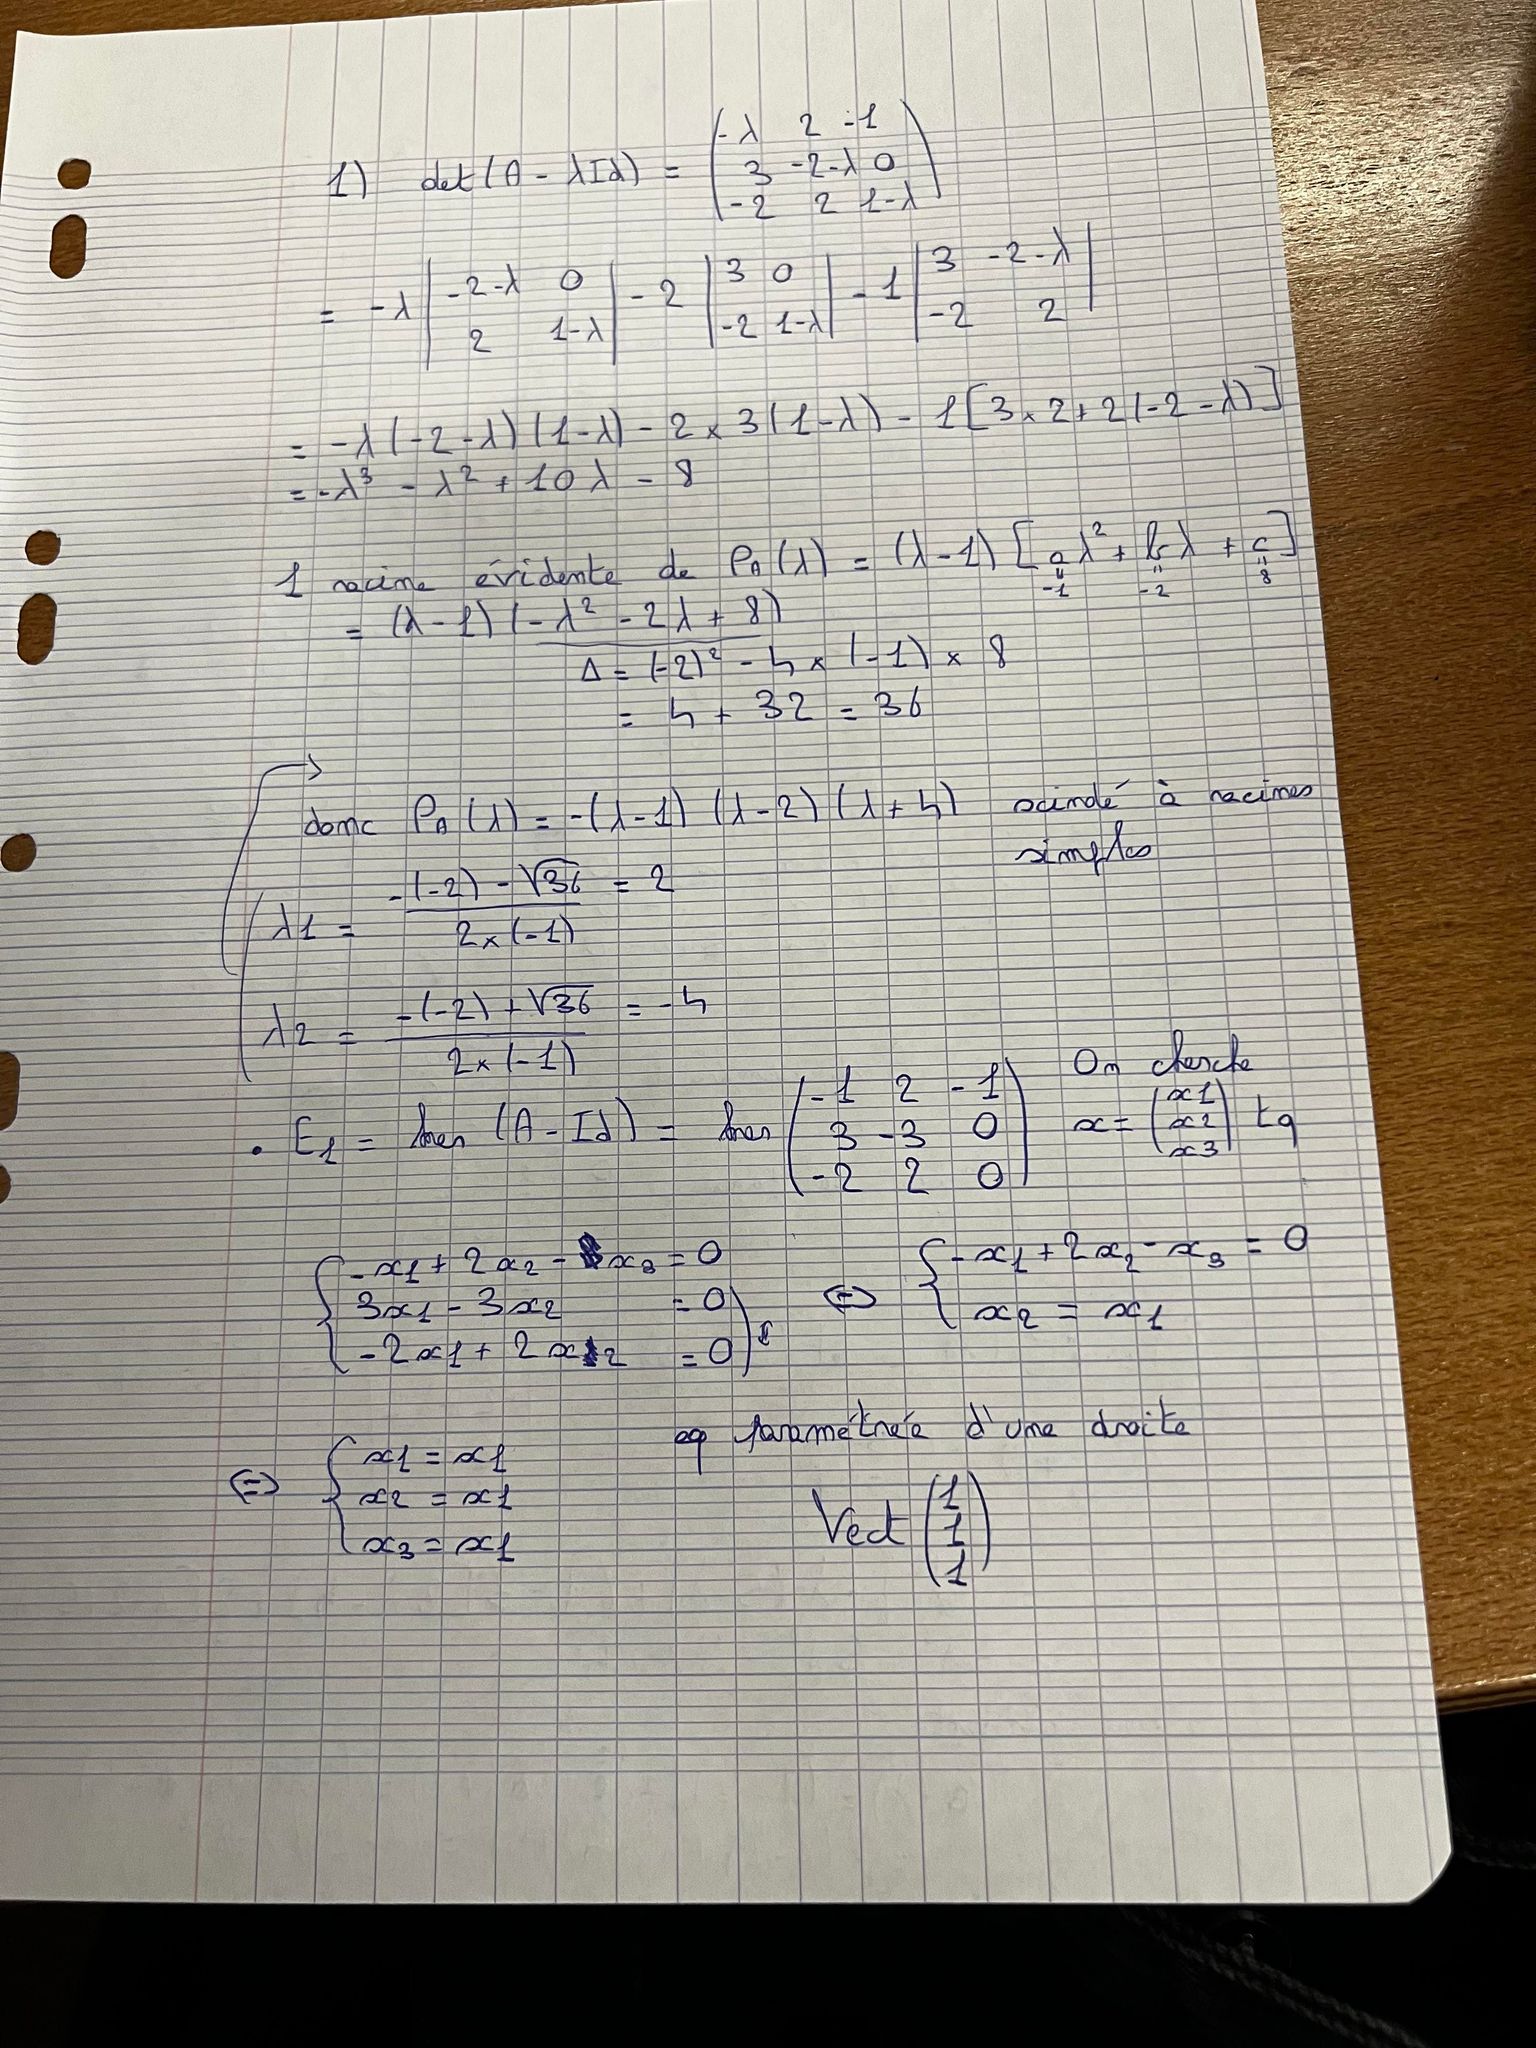 1) det(A - λId) = (-λ 2 -1
3 -2-λ 0
-2 2 1-λ)
= -λ |-2-λ 0
2 1-λ| - 2 |3 0
-2 1-λ| - 1 |3 -2-λ
-2 2|
= -λ(-2-λ)(1-λ) - 2 × 3(1-λ) - 1[3×2+2(-2-λ)]
= -λ³ - λ² + 10λ - 8
1 racine évidente de PA(λ) = (λ-1) [aλ² + bλ + c]
= -1 = -2 = 8
= (λ-1) (-λ² - 2λ + 8)
Δ = (-2)² - 4 × (-1) × 8
= 4 + 32 = 36
donc PA(λ) = -(λ-1) (λ-2) (λ+4) scindé à racines
simples
λ1 = -(-2) - √36 / 2×(-1) = 2
λ2 = -(-2) + √36 / 2×(-1) = -4
• E1 = ker (A - Id) = ker (-1 2 -1
3 -3 0
-2 2 0)
On cherche
x = (x1
x2
x3) tq
{-x1 + 2x2 - x3 = 0
3x1 - 3x2 = 0
-2x1 + 2x2 = 0
⇔ {-x1 + 2x2 - x3 = 0
x2 = x1
⇔ {x1 = x1
x2 = x1
x3 = x1
eq paramétrée d'une droite
Vect (1
1
1)